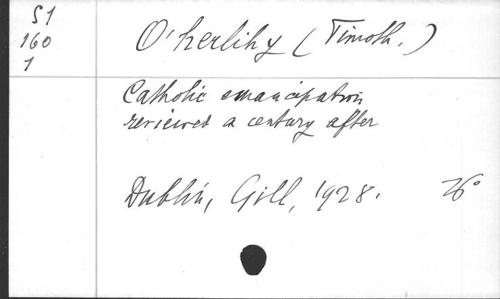 51
160
1
O'herlihy (Timoth.)
Catholic emancipation
reviewed a century after
Dublin, Gill, 1928.